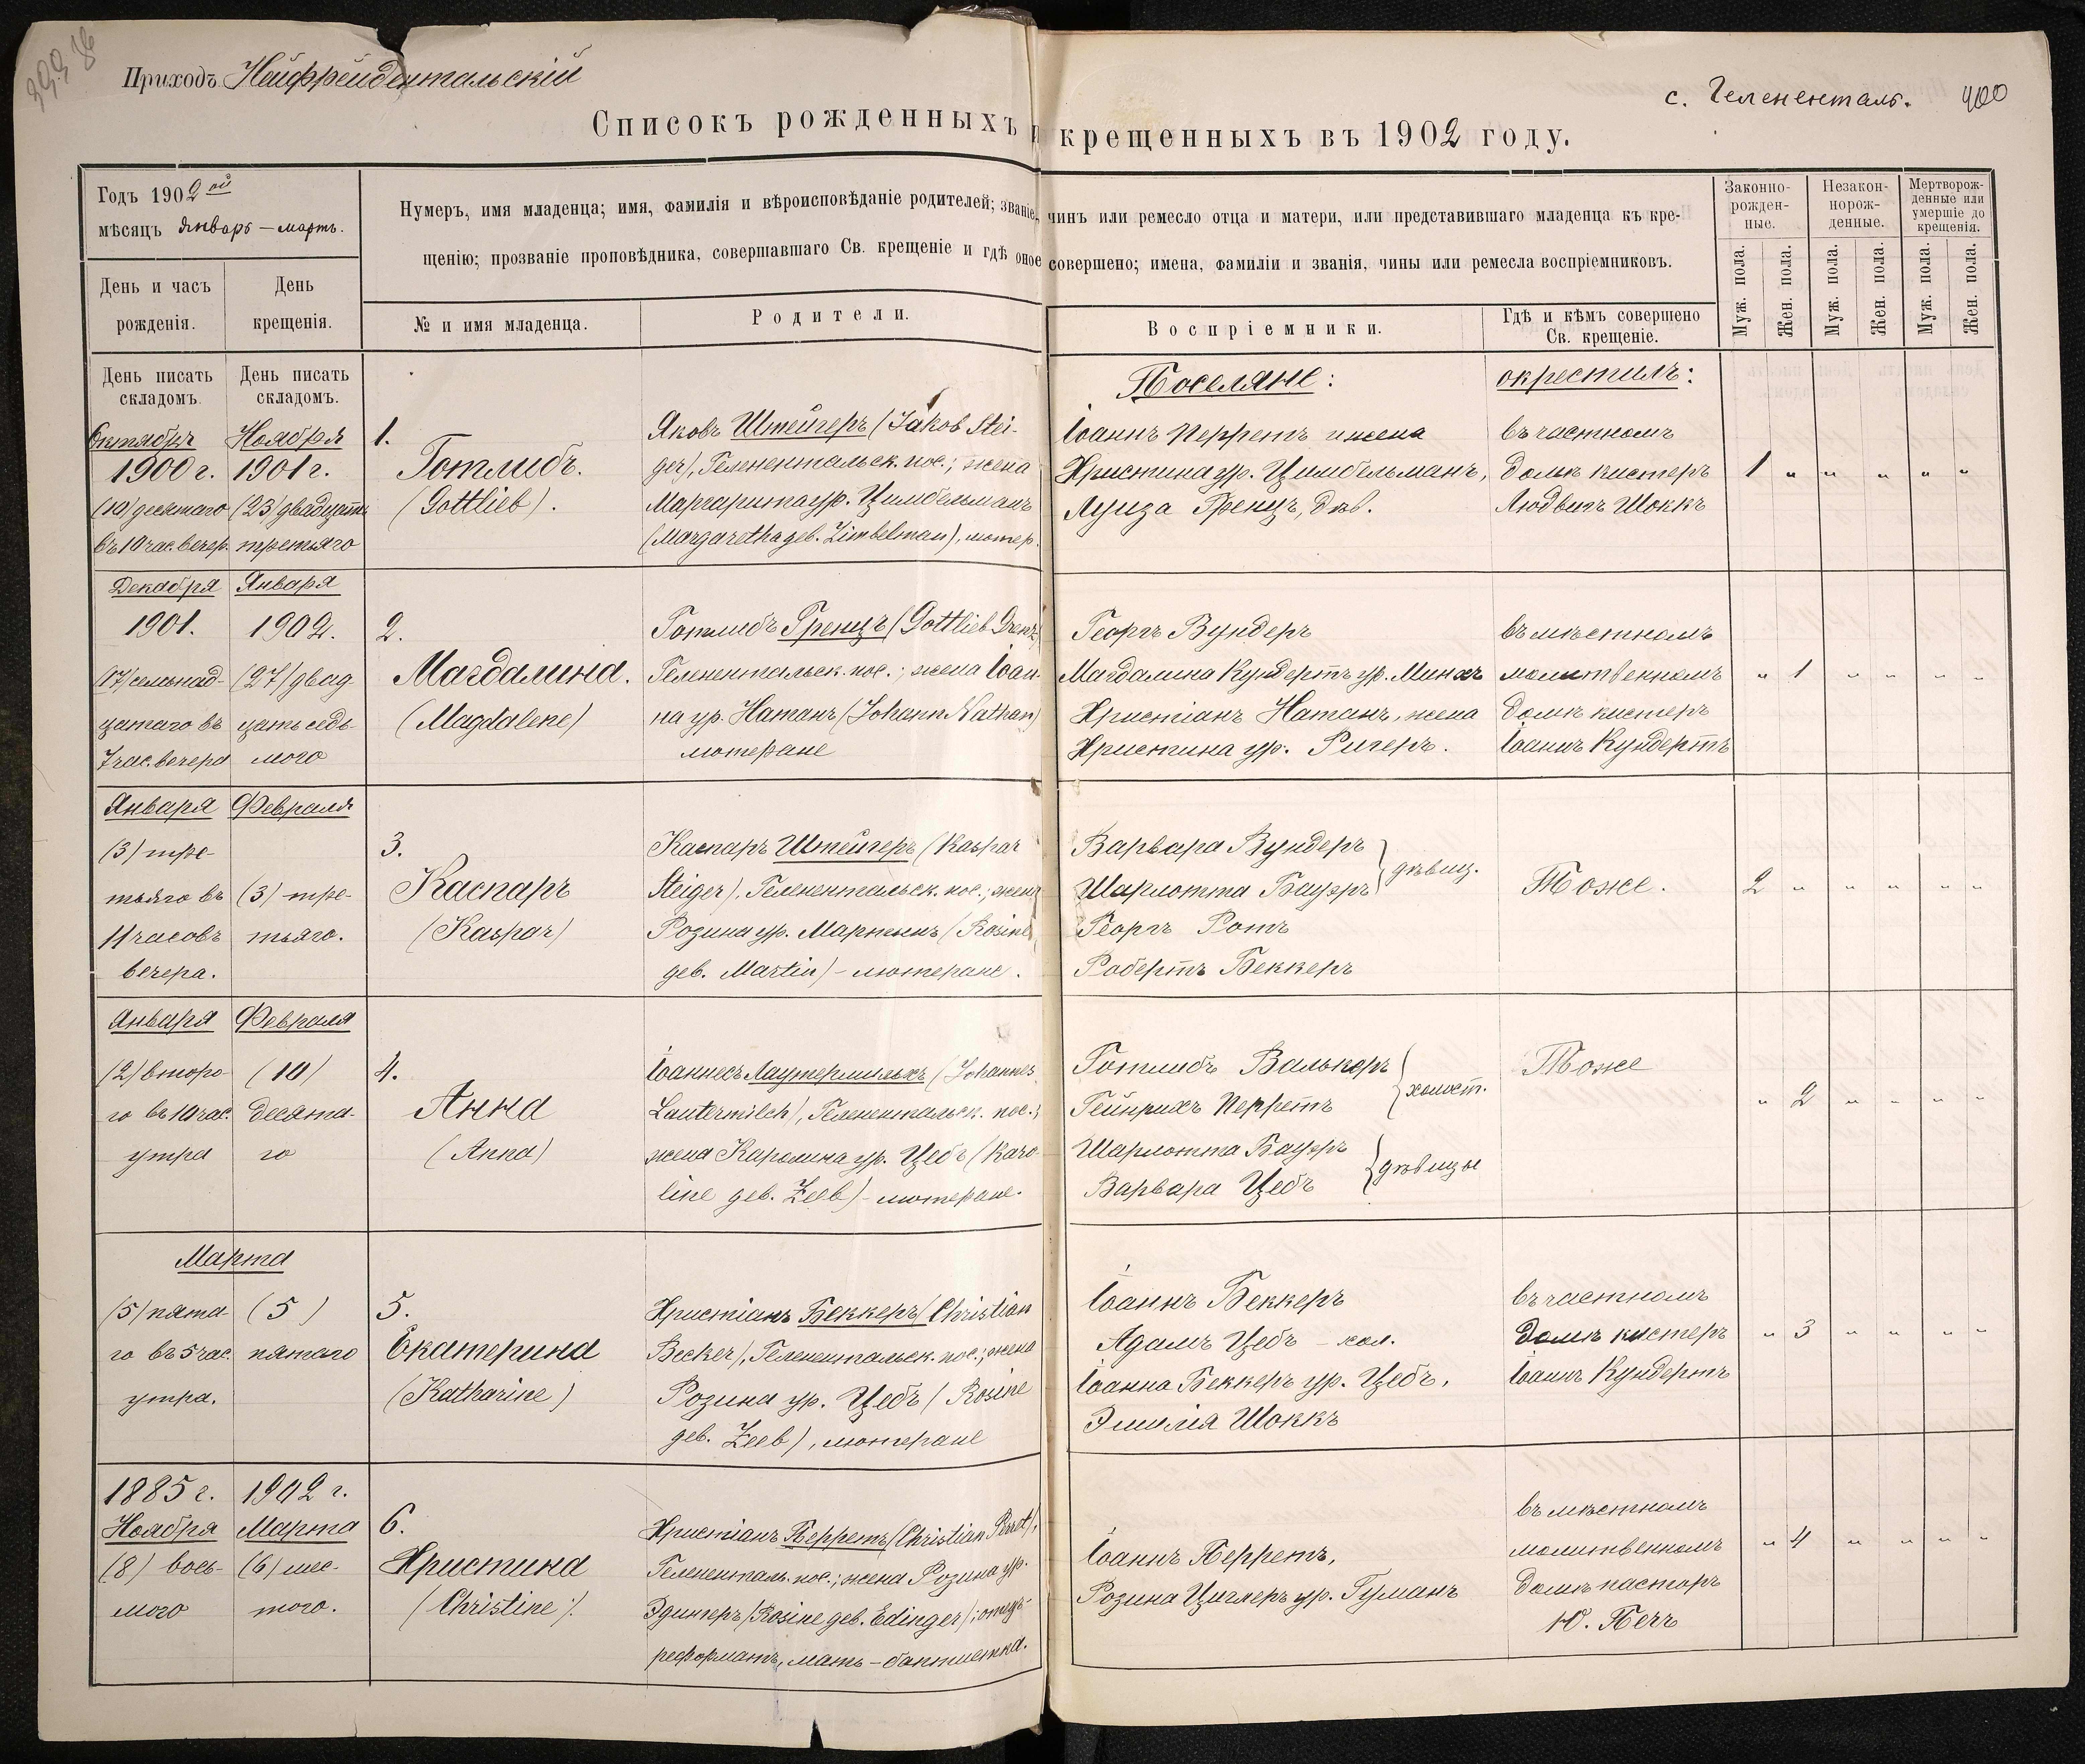 399 об
Приходъ Нейфрейдентальскій
с. Гелененталь. 400
Списокъ рожденныхъ и крещенныхъ въ 1902 году.
Годъ 1902 ой
мѣсяцъ Январь — мартъ.
Нумеръ, имя младенца; имя, фамилія и вѣроисповѣданіе родителей; званіе, чинъ или ремесло отца и матери, или представившаго младенца къ кре-
щенію; прозваніе проповѣдника, совершавшаго Св. крещеніе и гдѣ оное совершено; имена, фамиліи и званія, чины или ремесла воспріемниковъ.
Законно-
рожден-
ные.
Незакон-
норож-
денные.
Мертворож-
денные или
умершіе до
крещенія.
День и часъ
рожденія.
День
крещенія.
№ и имя младенца.
Родители.
Воспріемники.
Гдѣ и кѣмъ совершено
Св. крещеніе.
Муж. пола.
Жен. пола.
Муж. пола.
Жен. пола.
Муж. пола.
Жен. пола.
День писать
складомъ.
День писать
складомъ.
Поселяне:
окрестилъ:
Октября
1900 г.
(10) десятаго
въ 10 час. вечер.
Ноября
1901 г.
(23) двадцать
третьяго
1.
Готлибъ.
(Gottlieb).
Яковъ Штейгеръ (Jakob Stei-
ger), Геленентальск. пос.; жена
Маргарита ур. Цимбельманъ
(Margaretha geb. Zimbelman), лютер.
Іоаннъ Перретъ и жена
Христина ур. Цимбельманъ,
Луиза Гренцъ, дѣв.
въ частномъ
домѣ кистеръ
Людвигъ Шоккъ
1 " " " " "
Декабря
1901.
(17) семьнад-
цатаго въ
7 час. вечера
Января
1902.
(27) двад-
цать седь-
мого
2.
Магдалина.
(Magdalene)
Готлибъ Гренцъ (Gottlieb Grenz)
Геленентальск. пос.; жена Іоан-
на ур. Натанъ (Johann Nathan)
лютеране
Георгъ Вундеръ
Магдалина Кундертъ ур. Минхъ
Христіанъ Натанъ, жена
Христина ур. Ригеръ.
въ мѣстномъ
молитвенномъ
домѣ кистеръ
Іоаннъ Кундертъ
" 1 " " " "
Января
(3) тре-
тьяго въ
11 часовъ
вечера.
Февраля
(3) тре-
тьяго.
3.
Каспаръ
(Kaspar)
Каспаръ Штейгеръ (Kaspar
Steiger), Геленентальск. пос.; жена
Розина ур. Мартынъ (Rosine
geb. Martin) - лютеране.
Варвара Вундеръ
Шарлотта Бауэръ
дѣвиц.
Георгъ Ротъ
Робертъ Беккеръ
Тоже.
2 " " " " "
Января
(2) второ-
го въ 10 час.
утра
Февраля
(10)
десята-
го
4.
Анна
(Anna)
Іоаннесъ Лаутермильхъ (Johannes
Lautermilch), Геленентальск. пос.;
жена Каролина ур. Цебъ (Karo-
line geb. Zeeb) - лютеране.
Готлибъ Валькеръ
Гейнрихъ Перретъ
холост.
Шарлотта Бауэръ
Варвара Цебъ
дѣвицы
Тоже
" 2 " " " "
Марта
(5) пята-
го въ 5 час.
утра.
(5)
пятаго
5.
Екатерина
(Katharine)
Христіанъ Беккеръ (Christian
Becker), Геленентальск. пос.; жена
Розина ур. Цебъ (Rosine
geb. Zeeb), лютеране
Іоаннъ Беккеръ
Адамъ Цебъ - хол.
Іоанна Беккеръ ур. Цебъ,
Эмилія Шоккъ
въ частномъ
домѣ кистеръ
Іоаннъ Кундертъ
" 3 " " " "
1885 г.
Ноября
(8) вось-
мого
1902 г.
Марта
(6) шес-
того.
6.
Христина
(Christine).
Христіанъ Перретъ (Christian Perrot),
Гелененталь. пос.; жена Розина ур.
Эдингеръ (Rosine geb. Edinger); отецъ-
реформатъ, мать - баптистка.
Іоаннъ Перретъ,
Розина Циглеръ ур. Гуманъ
въ мѣстномъ
молитвенномъ
домѣ пасторъ
Ю. Печъ
" 4 " " " "